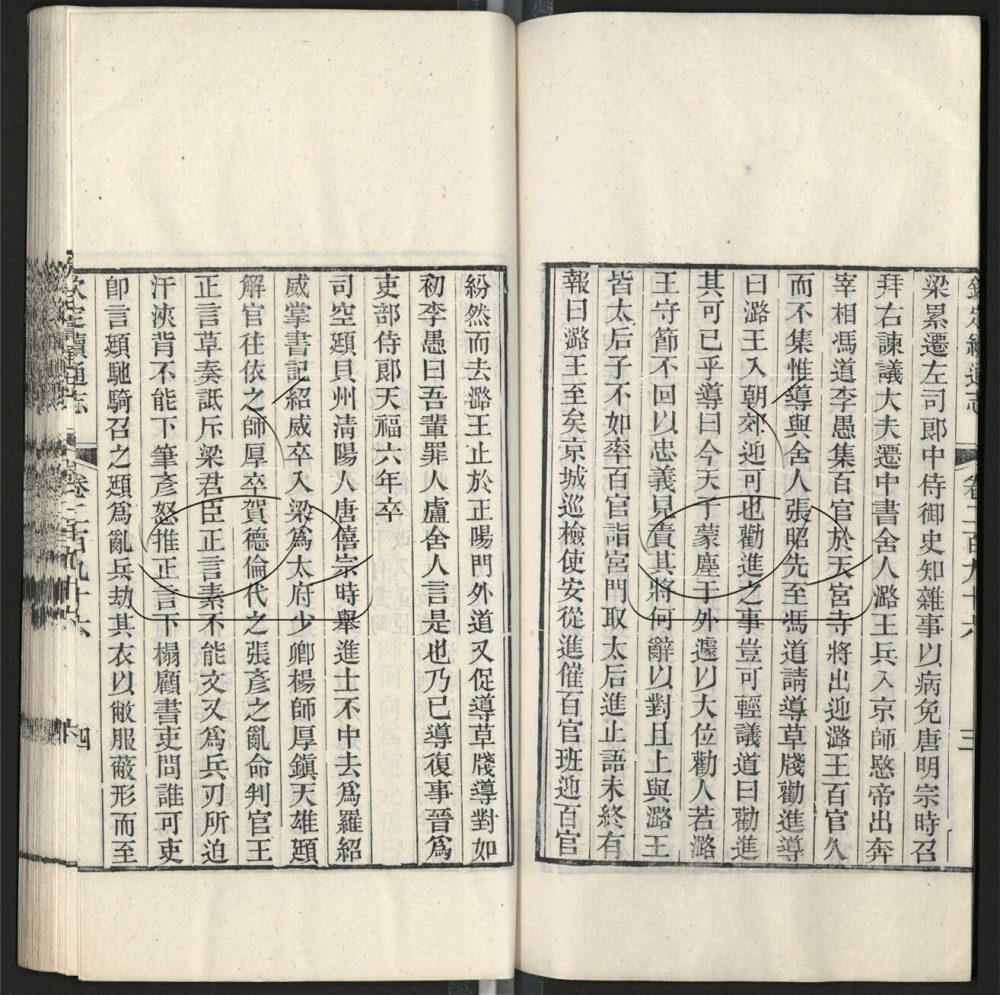 欽定續通志 卷二百九十六 三
梁累遷左司郎中侍御史知雜事以病免唐明宗時召
拜右諫議大夫遷中書舍人潞王兵入京師愍帝出奔
宰相馮道李愚集百官於天宮寺將出迎潞王百官久
而不集惟導與舍人張昭先至馮道請導草牋勸進導
曰潞王入朝郊迎可也勸進之事豈可輕議道曰勸進
其可已乎導曰今天子蒙塵于外遽以大位勸人若潞
王守節不回以忠義見責其將何辭以對且上與潞王
皆太后子不如率百官詣宮門取太后進止語未終有
報曰潞王至矣京城巡檢使安從進催百官班迎百官
紛然而去潞王止於正陽門外道又促導草牋導對如
初李愚曰吾輩罪人盧舍人言是也乃已導復事晉為
吏部侍郎天福六年卒
司空頲貝州清陽人唐僖宗時舉進士不中去為羅紹
威掌書記紹威卒入梁為太府少卿楊師厚鎮天雄頲
解官往依之師厚卒賀德倫代之張彥之亂命判官王
正言草奏詆斥梁君臣正言素不能文又為兵刃所迫
汗浹背不能下筆彥怒推正言下榻顧書吏問誰可吏
卽言頲馳騎召之頲為亂兵劫其衣以敝服蔽形而至
欽定續通志 卷二百九十六 四